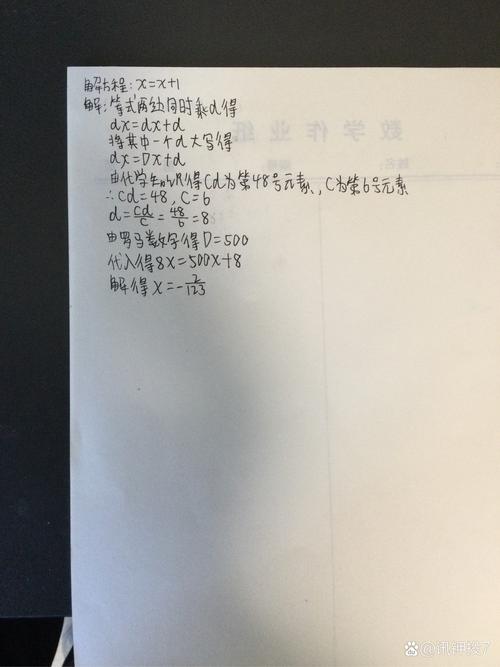 解方程:x=x+1
解:等式两边同时乘d得
dx=dx+d
将其中一个d大写得
dx=Dx+d
由化学知识得Cd为第48号元素,C为第6号元素
∴Cd=48,C=6
d=Cd/C=48/6=8
由罗马数字得D=500
代入得8x=500x+8
解得x=-2/123
数学作业纸